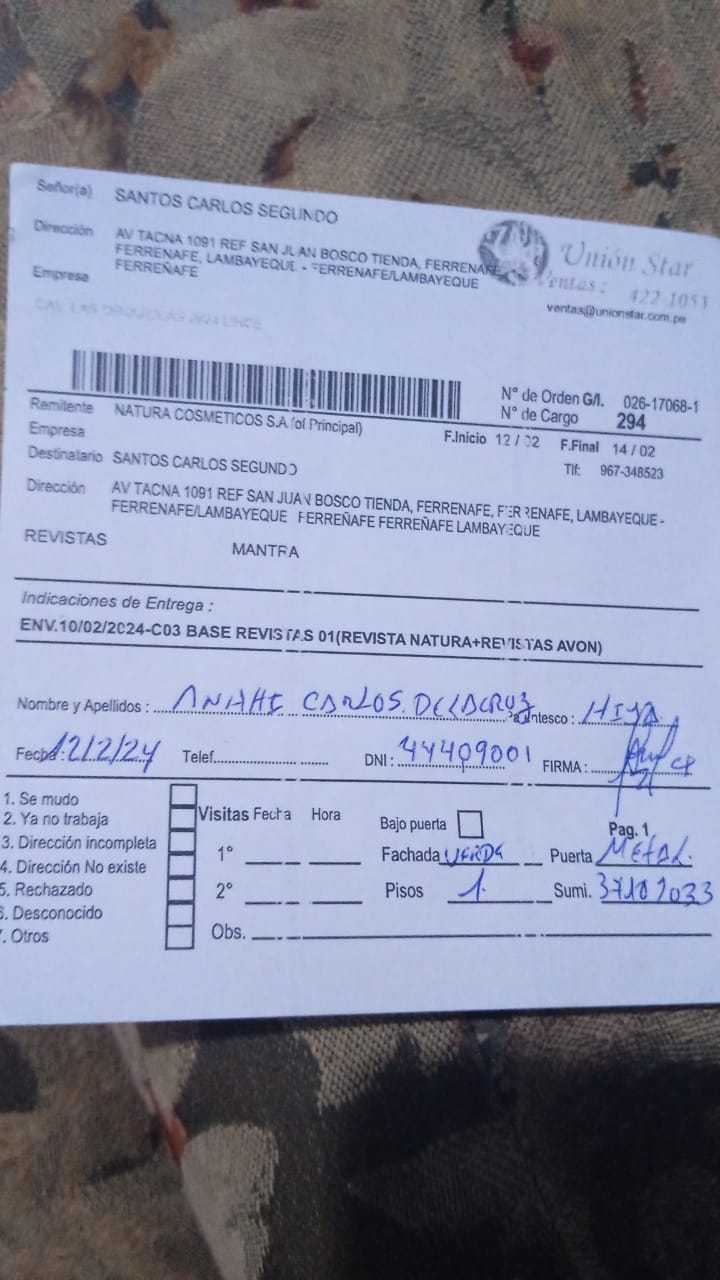 Señor(a) SANTOS CARLOS SEGUNDO
Dirección AV TACNA 1091 REF SAN JUAN BOSCO TIENDA, FERRENAFE
FERRENAFE, LAMBAYEQUE - FERRENAFE/LAMBAYEQUE
Empresa FERREÑAFE
Unión Star
Ventas : 422-1053
ventas@unionstar.com.pe
N° de Orden G/I. 026-17068-1
N° de Cargo 294
Remitente NATURA COSMETICOS S.A.(of Principal)
F.Inicio 12 / 02 F.Final 14 / 02
Empresa
Tlf: 967-348523
Destinatario SANTOS CARLOS SEGUNDO
Dirección AV TACNA 1091 REF SAN JUAN BOSCO TIENDA, FERRENAFE, FERRENAFE, LAMBAYEQUE -
FERRENAFE/LAMBAYEQUE FERREÑAFE FERREÑAFE LAMBAYEQUE
REVISTAS MANTRA
Indicaciones de Entrega :
ENV.10/02/2024-C03 BASE REVISTAS 01(REVISTA NATURA+REVISTAS AVON)
Nombre y Apellidos : ANAHI CARLOS DELACRUZ Parentesco : HIJA
Fecha : 12/2/24 Telef. DNI : 44409001 FIRMA :
1. Se mudo
2. Ya no trabaja
3. Dirección incompleta
4. Dirección No existe
5. Rechazado
6. Desconocido
7. Otros
Visitas Fecha Hora
1°
2°
Obs.
Bajo puerta Pag. 1
Fachada VERDE Puerta METAL.
Pisos 1. Sumi.